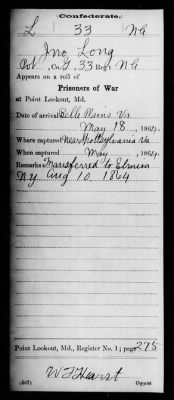 Confederate.
L 33 NC
Jno Long
Pvt, Co. I, 33 Reg't, NC
Appears on a roll of
Prisoners of War
at Point Lookout, Md.
Date of arrival Belle Plains Va
May 18, 1864.
Where captured Near Spottsylvania Va
When captured May, 1864.
Remarks Transferred to Elmira
NY Aug 10. 1864
Point Lookout, Md., Register No. 1; page 275
W F Hewst
Copyist.